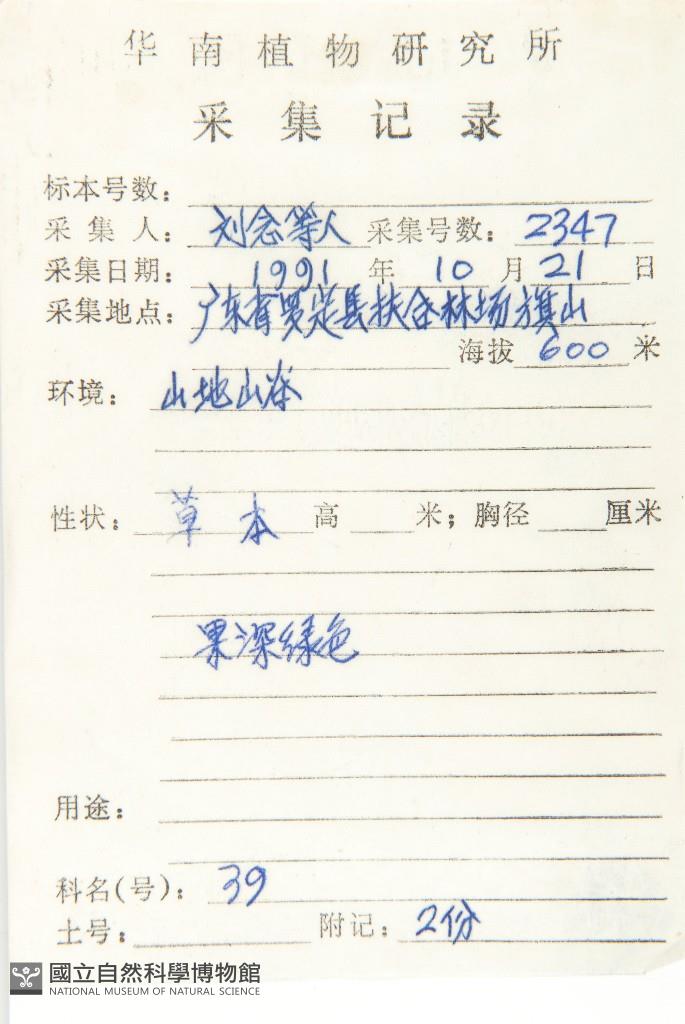 华南植物研究所
采集记录
标本号数：
采集人： 刘念等人 采集号数： 2347
采集日期： 1991 年 10 月 21 日
采集地点： 广东省罗定县扶合林场旗山
海拔 600 米
环境： 山地山谷
性状： 草本 高 米；胸径 厘米
果深绿色
用途：
科名(号)： 39
土号： 附记： 2份
國立自然科學博物館
NATIONAL MUSEUM OF NATURAL SCIENCE